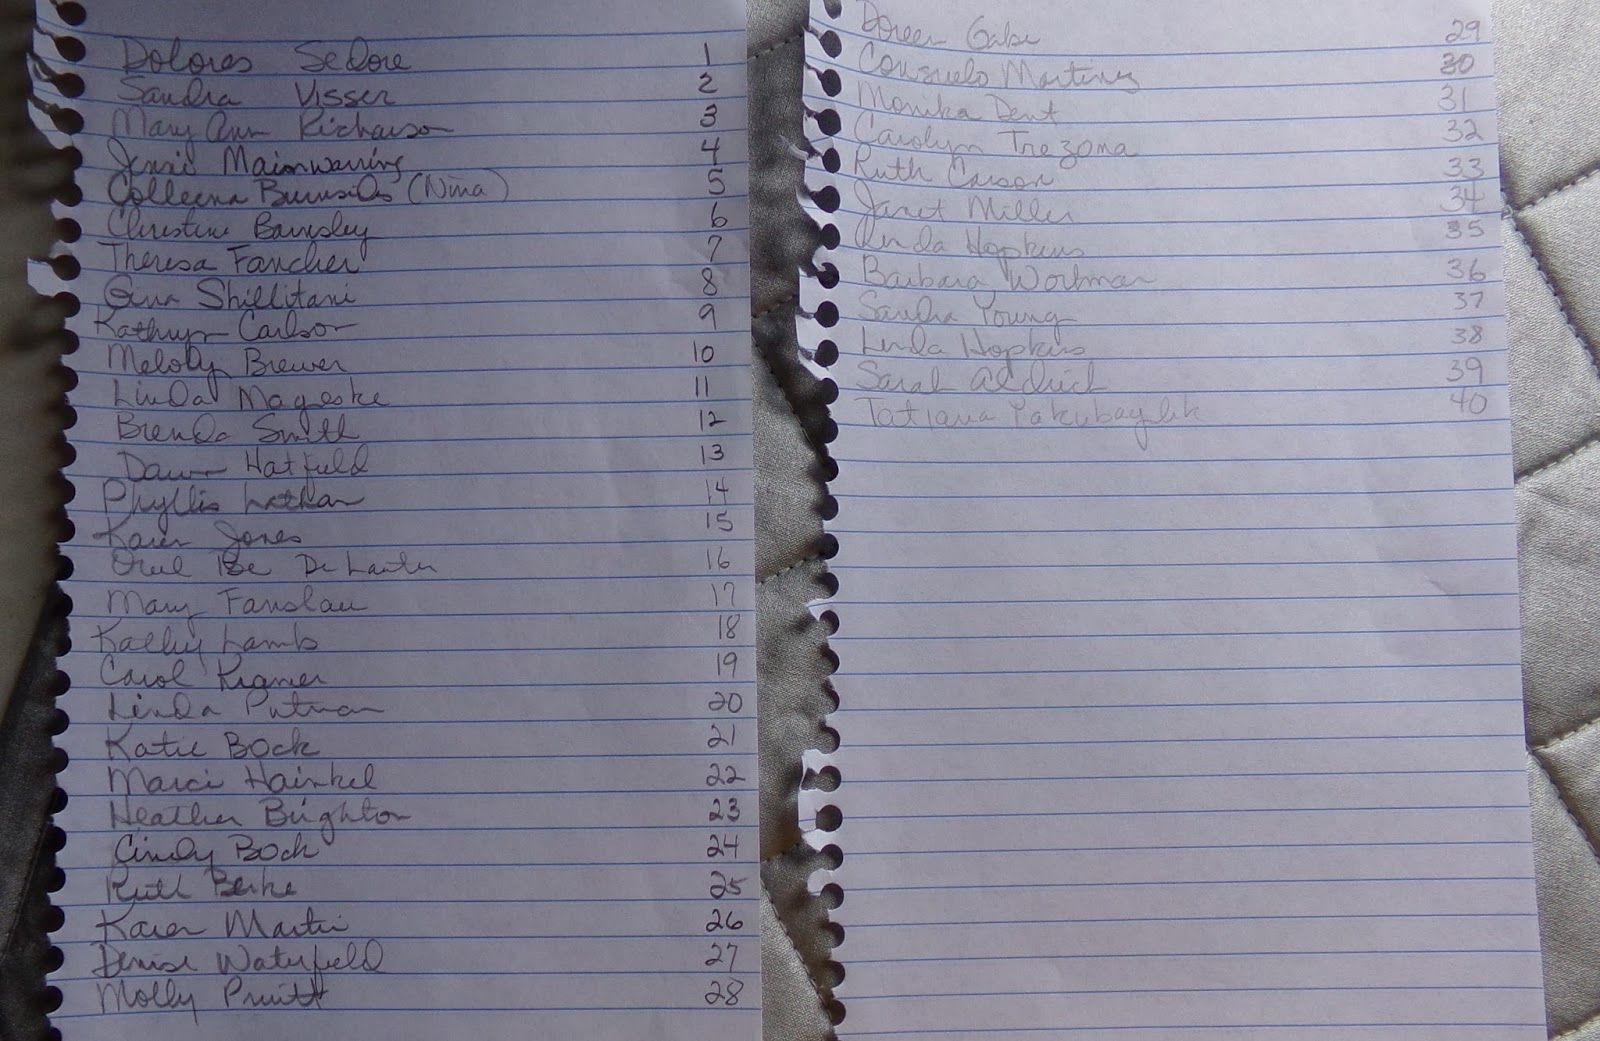 Dolores Sedore 1
Sandra Visser 2
Mary Ann Richarson 3
Jessie Mainwarring 4
Colleena Burnsides (Nina) 5
Christine Barnsley 6
Theresa Fancher 7
Gina Shillitani 8
Kathryn Carlson 9
Melody Brewer 10
Linda Mageske 11
Brenda Smith 12
Dawn Hatfield 13
Phyllis Lathan 14
Karen Jones 15
De Lauter 16
Mary Fanslau 17
Kathy Lamb 18
Carol Kramer 19
Linda Putman 20
Katie Bock 21
Marci Hainkel 22
Heather Brighton 23
Cindy Bock 24
Ruth Berke 25
Karen Martin 26
Denise Waterfield 27
Molly Pruitt 28
Doreen Gabe 29
Consuelo Martinez 30
Monika Dent 31
Carolyn Trezona 32
Ruth Carson 33
Janet Miller 34
Linda Hopkins 35
Barbara Workman 36
Sandra Young 37
Linda Hopkins 38
Sarah Aldrich 39
Tatiana 40